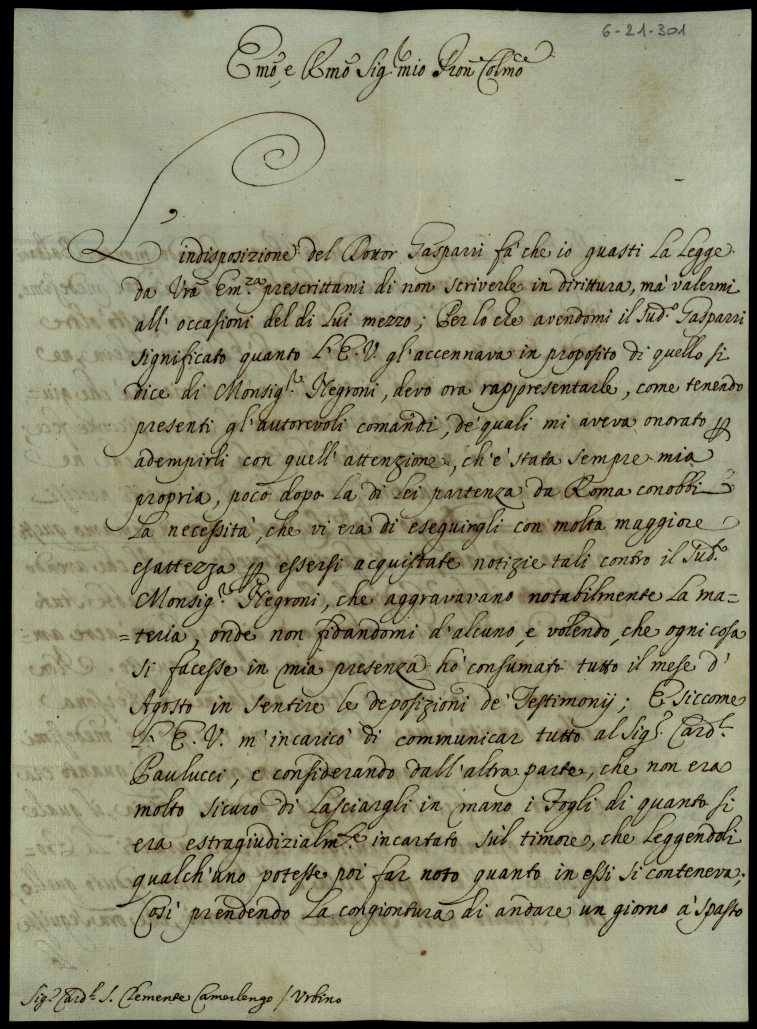 6-21-301
Emõ, e Rmõ Sig.r mio Pron Colmõ
L'indisposizione del Dottor Gasparri fà che io guasti la legge
da Vrã Em.za prescrittami di non scriverle in dirittura, mà valermi
all'occasioni del di lui mezzo; Per lo che avendomi il Sud.o Gasparri
significato quanto L'E.V. gl'accennava in proposito di quello si
dice di Monsig.r Negroni, devo ora rappresentarle, come tenendo
presenti gl'autorevoli comandi, de quali mi aveva onorato p
adempirli con quell'attenzione, ch'è stata sempre mia
propria, poco dopo la di lei partenza da Roma conobbi
la necessità, che vi era di eseguirgli con molta maggiore
esattezza p essersi acquistate notizie tali contro il Sud.o
Monsig.r Negroni, che aggravavano notabilmente la ma=
=teria, onde non fidandomi d'alcuno, e volendo, che ogni cosa
si facesse in mia presenza hò consumato tutto il mese d'
Agosto in sentire le deposizioni de' Testimonij; E siccome
L'E.V. m'incaricò di communicar tutto al Sig.r Card.l
Paulucci, e considerando dall'altra parte, che non era
molto sicuro di lasciargli in mano i Fogli di quanto si
era estragiudizialm.te incartato sul timore, che leggendoli
qualch'uno potesse poi far noto quanto in essi si conteneva;
Così prendendo la congiontura di andare un giorno à spasso
Sig.r Card.l S. Clemente Camerlengo / Urbino